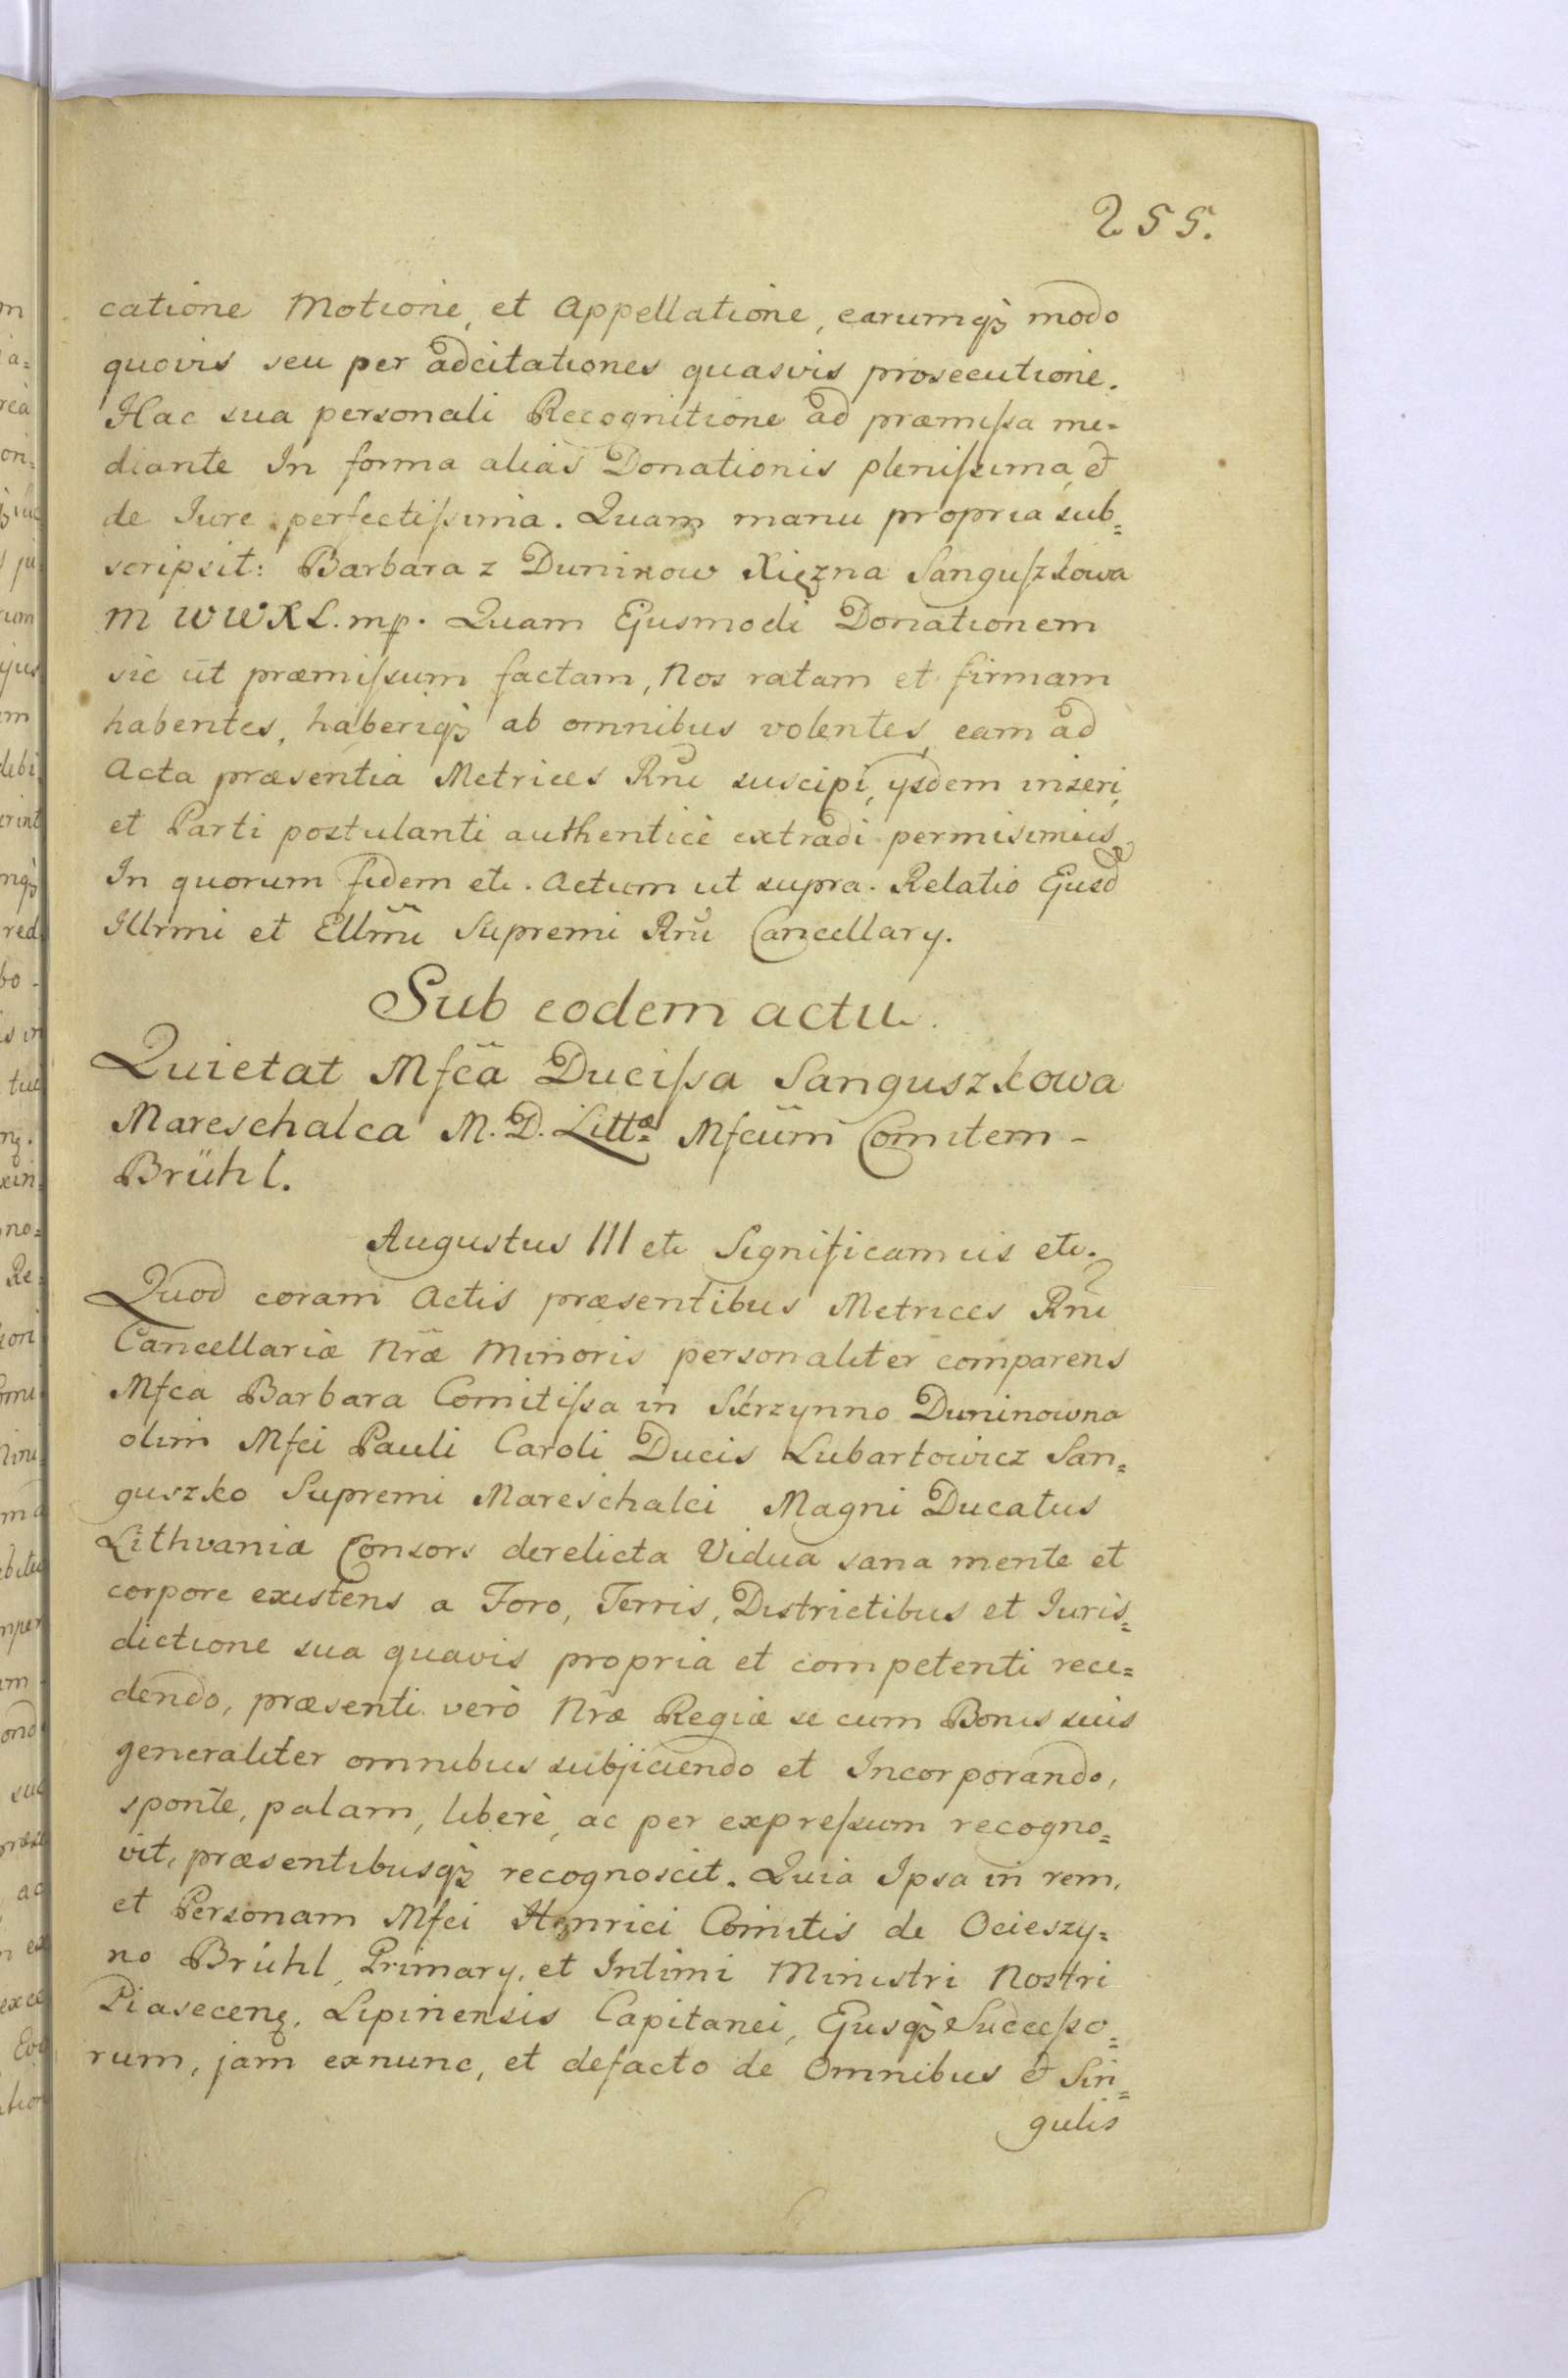 255.
catione Motione, et Appellatione, earumq3 modo
quovis seu per adcitationes quasvis prosecutione.
Hac sua personali Recognitione ad præmiſsa me-
diante In forma alias Donationis pleniſsima, et
de Iure perfectiſsima. Quam manu propria sub=
scripsit: Barbara z Duninow Xięzna Sanguſzkowa
M WWXL. mp. Quam Ejusmodi Donationem
sic ut præmiſsum factam, Nos ratam et firmam
habentes, haberiq3 ab omnibus volentes, eam ad
Acta præsentia Metrices Rni suscipi, ysdem inseri,
et Parti postulanti authenticè extradi permisimus.
In quorum fidem etc. Actum ut supra. Relatio Ejusd
Illrmi et Ellmi Supremi Rni Cancellary.
Sub eodem actu.
Quietat Mfca Duciſsa Sanguszkowa
Mareschalca M. D. Litt&ae; Mfcum Comitem -
Brühl.
Augustus III etc Significamus etc.
Quod coram Actis præsentibus Metrices Rni
Cancellariæ Nræ Minoris personaliter comparens
Mfca Barbara Comitiſsa in Skrzynno Duninowna
olim Mfci Pauli Caroli Ducis Lubartowicz San=
guszko Supremi Mareschalci Magni Ducatus
Lithvaniæ Consors derelicta Vidua sana mente et
corpore existens a Foro, Terris, Districtibus et Iuris=
dictione sua quavis propria et competenti rece=
dendo, præsenti verò Nræ Regiæ se cum Bonis suis
generaliter omnibus subjiciendo et Incorporando,
sponte, palam, liberè, ac per expreſsum recogno=
vit, præsentibusq3 recognoscit. Quia Ipsa in rem,
et Personam Mfci Henrici Comitis de Ocieszy=
no Brühl, Primary, et Intimi Ministri Nostri
Piaseceñ, Lipinensis Capitanei, Ejusq3 Succeſso=
rum, jam exnunc, et defacto de Omnibus et Sin=
gulis